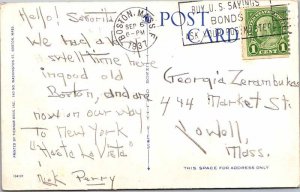 Hello! Señorita
We had a
swell time here
in good old
Boston, and are
now on our way
to New York
"Hasta La Vista"
Nick Perry
POST
CARD
BOSTON, MASS.
SEP 6
6-PM
1937
BUY U.S. SAVINGS
BONDS
ASK YOUR POSTMASTER
1 CENT 1
Georgia Zerambukas
444 Market St.
Lowell,
Mass.
THIS SPACE FOR ADDRESS ONLY